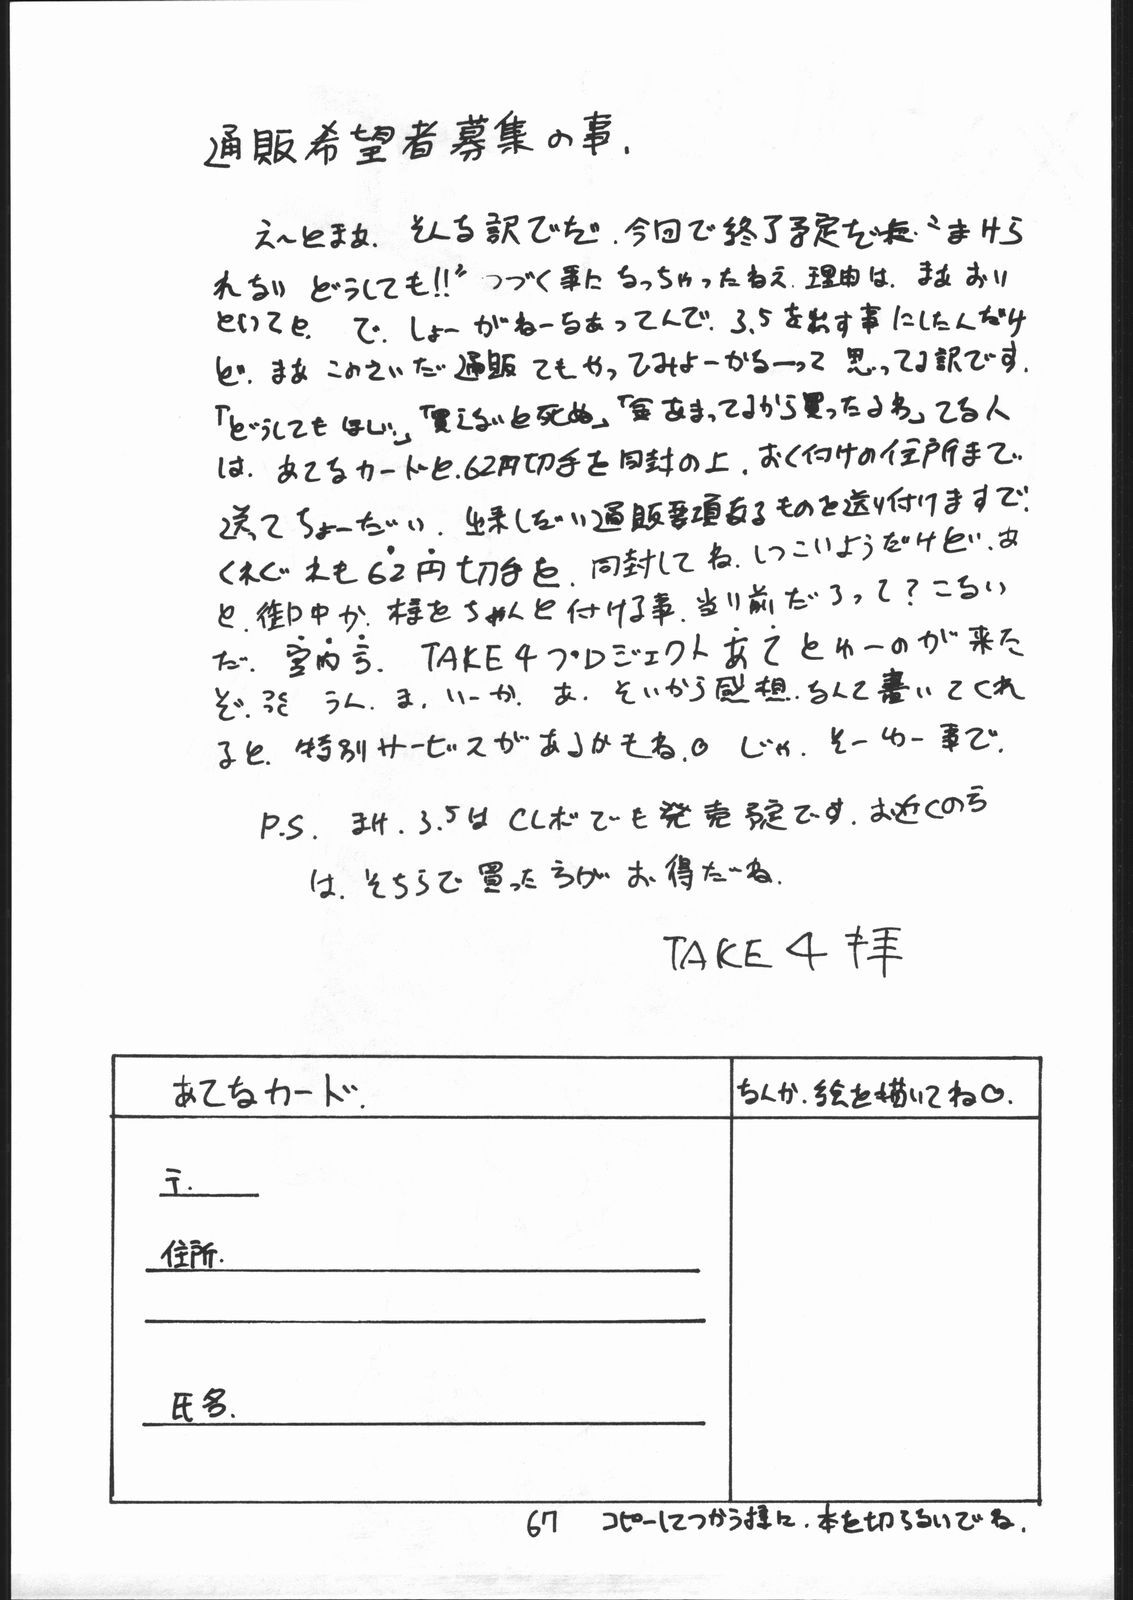 通販希望者募集の事.
え〜とまぁ. そんな訳でだ. 今回で終了予定だった"まけら
れない どうしても!!" つづく事になっちゃったねえ. 理由は. まあ おい
といてと. で. しょーがねーなあってんで. 3.5を出す事にしたんだけ
ど. まあ このさいだ 通販でもやってみよーかなーって 思ってる訳です.
「どうしてもほしい」「買えないと死ぬ」「金あまってるから買ったるわ」てな人
は. あてなカードと. 62円切手を同封の上. おく付けの住所まで
送ってちょーだい. 出来しだい通販要項なるものを送り付けますで.
くれぐれも62円切手を. 同封してね. しつこいようだけど. あ
と. 御中か. 様をちゃんと付ける事. 当り前だろって? こないだ
だ. 宮内方. TAKE4プロジェクトあてとゆーのが来た
ぞ. うん. ま. いーか. あ. そいから感想. なんて書いてくれ
ると. 特別サービスがあるかもね.♡ じゃ. そーゆー事で.
P.S. まけ. 3.5はCLボでも発売予定です. お近くの方
は. そちらで買った方がお得だーね.
TAKE 4 拝
あてなカード.
なんか. 絵を描いてね♡.
〒.
住所.
氏名.
67 コピーしてつかう様に. 本を切らないでね.